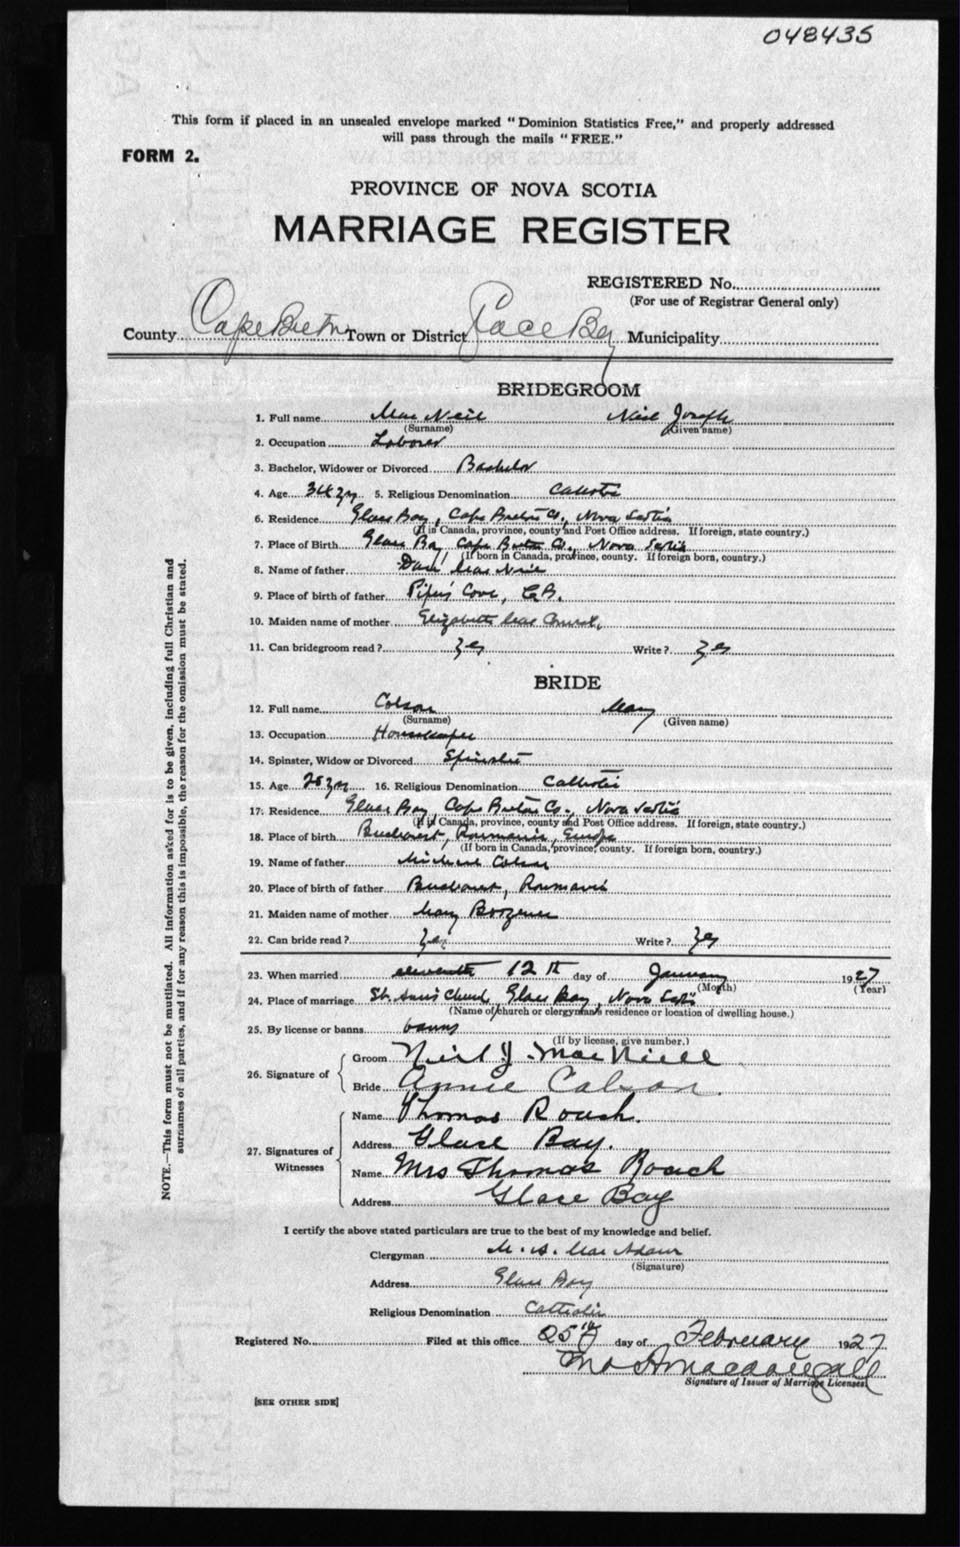 048435
This form if placed in an unsealed envelope marked "Dominion Statistics Free," and properly addressed
will pass through the mails "FREE."
FORM 2.
PROVINCE OF NOVA SCOTIA
MARRIAGE REGISTER
REGISTERED No.
(For use of Registrar General only)
County Cape Breton Town or District Glace Bay Municipality
BRIDEGROOM
1. Full name Mac Neil Neil Joseph
(Surname) (Given name)
2. Occupation Laborer
3. Bachelor, Widower or Divorced Bachelor
4. Age 34 yrs 5. Religious Denomination Catholic
6. Residence Glace Bay, Cape Breton Co., Nova Scotia
(If in Canada, province, county and Post Office address. If foreign, state country.)
7. Place of Birth Glace Bay, Cape Breton Co., Nova Scotia
(If born in Canada, province, county. If foreign born, country.)
8. Name of father Dan Mac Neil
9. Place of birth of father Piper's Cove, C.B.
10. Maiden name of mother Elizabeth Mac
11. Can bridegroom read? Yes Write? Yes
BRIDE
12. Full name Colson Mary
(Surname) (Given name)
13. Occupation Housekeeper
14. Spinster, Widow or Divorced Spinster
15. Age 28 yrs 16. Religious Denomination Catholic
17. Residence Glace Bay, Cape Breton Co., Nova Scotia
(If in Canada, province, county and Post Office address. If foreign, state country.)
18. Place of birth Bucharest, Roumania, Europe
(If born in Canada, province, county. If foreign born, country.)
19. Name of father Michael Colson
20. Place of birth of father Bucharest, Roumania
21. Maiden name of mother Mary
22. Can bride read? Yes Write? Yes
23. When married 12th day of January 1927
(Month) (Year)
24. Place of marriage St. Ann's Church, Glace Bay, Nova Scotia
(Name of church or clergyman's residence or location of dwelling house.)
25. By license or banns banns
(If by license, give number.)
26. Signature of
Groom Neil J. MacNeill
Bride Annie Calson
27. Signatures of Witnesses
Name Thomas Roach
Address Glace Bay.
Name Mrs Thomas Roach
Address Glace Bay
I certify the above stated particulars are true to the best of my knowledge and belief.
Clergyman M. A. Mac Adam
(Signature)
Address Glace Bay
Religious Denomination Catholic
Registered No. Filed at this office 25th day of February 1927
Macdougall
Signature of Issuer of Marriage Licenses
[SEE OTHER SIDE]
NOTE.—This form must not be mutilated. All information asked for is to be given, including full Christian and
surnames of all parties, and if for any reason this is impossible, the reason for the omission must be stated.